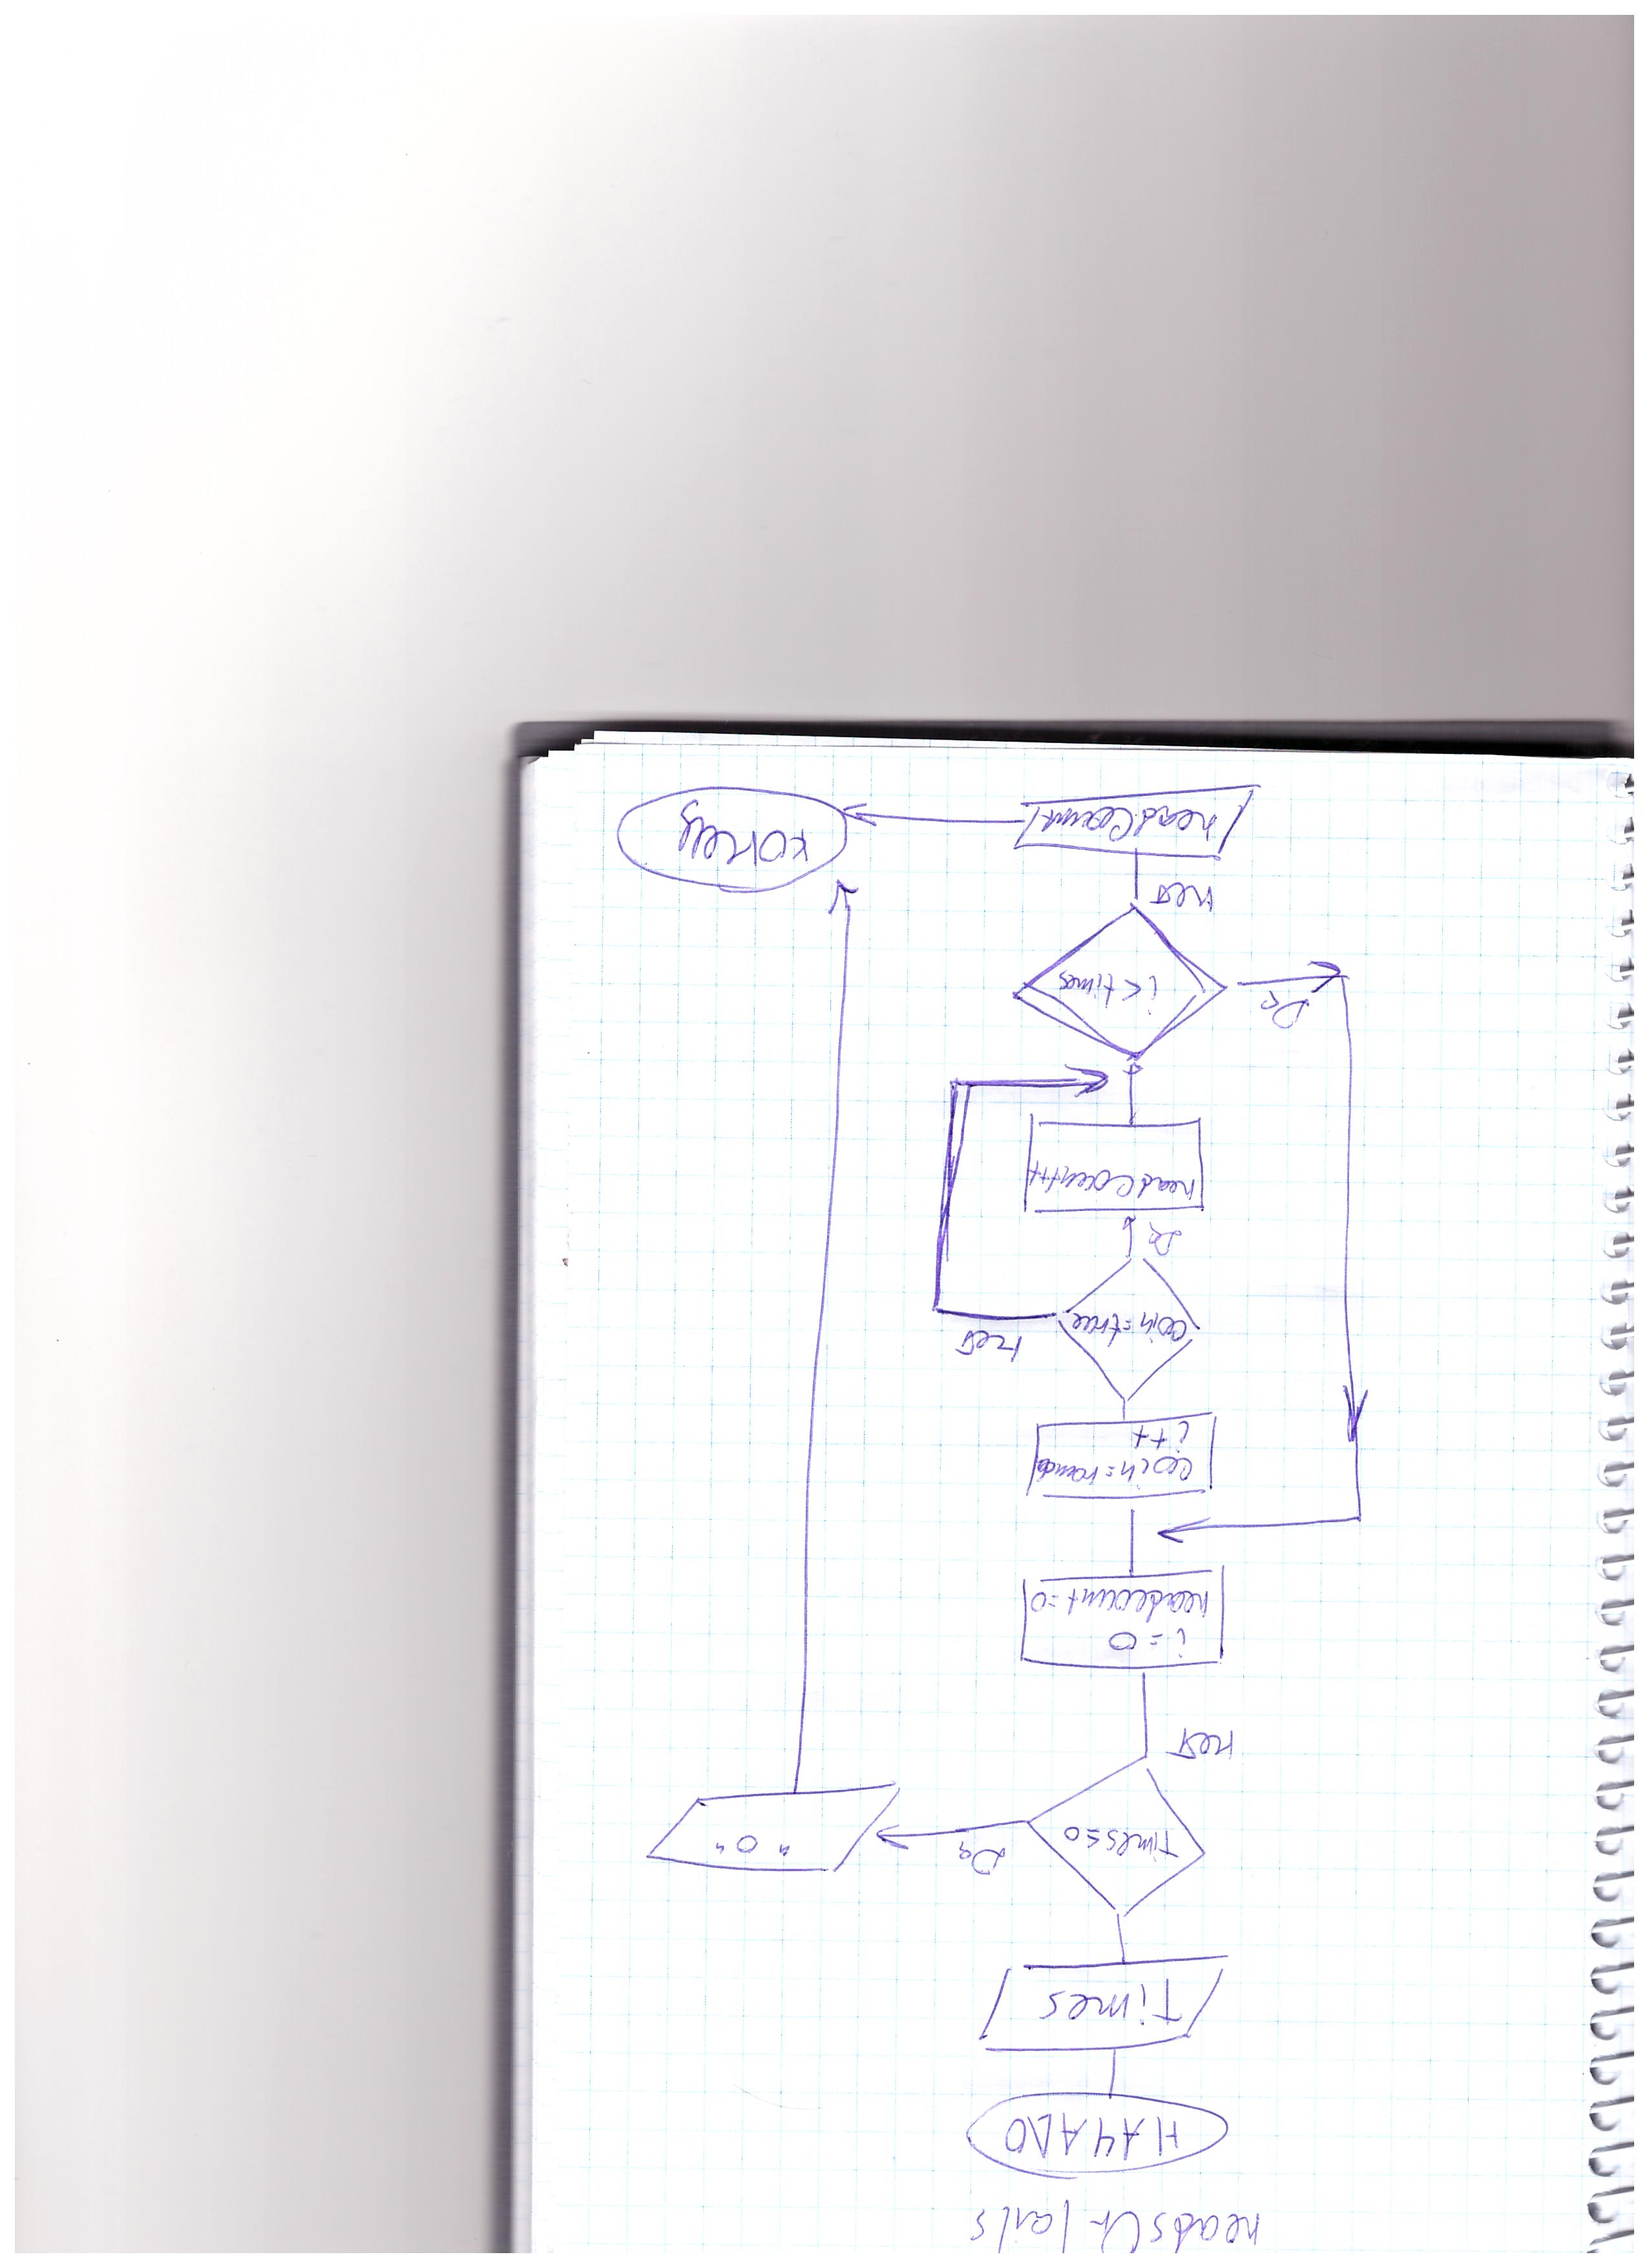 headsOrTails
НАЧАЛО
Times
Times≤0
Да
"0"
нет
i=0
headcount=0
coin=random
i++
coin=true
нет
Да
headCount++
i<times
Да
нет
headCount
конец